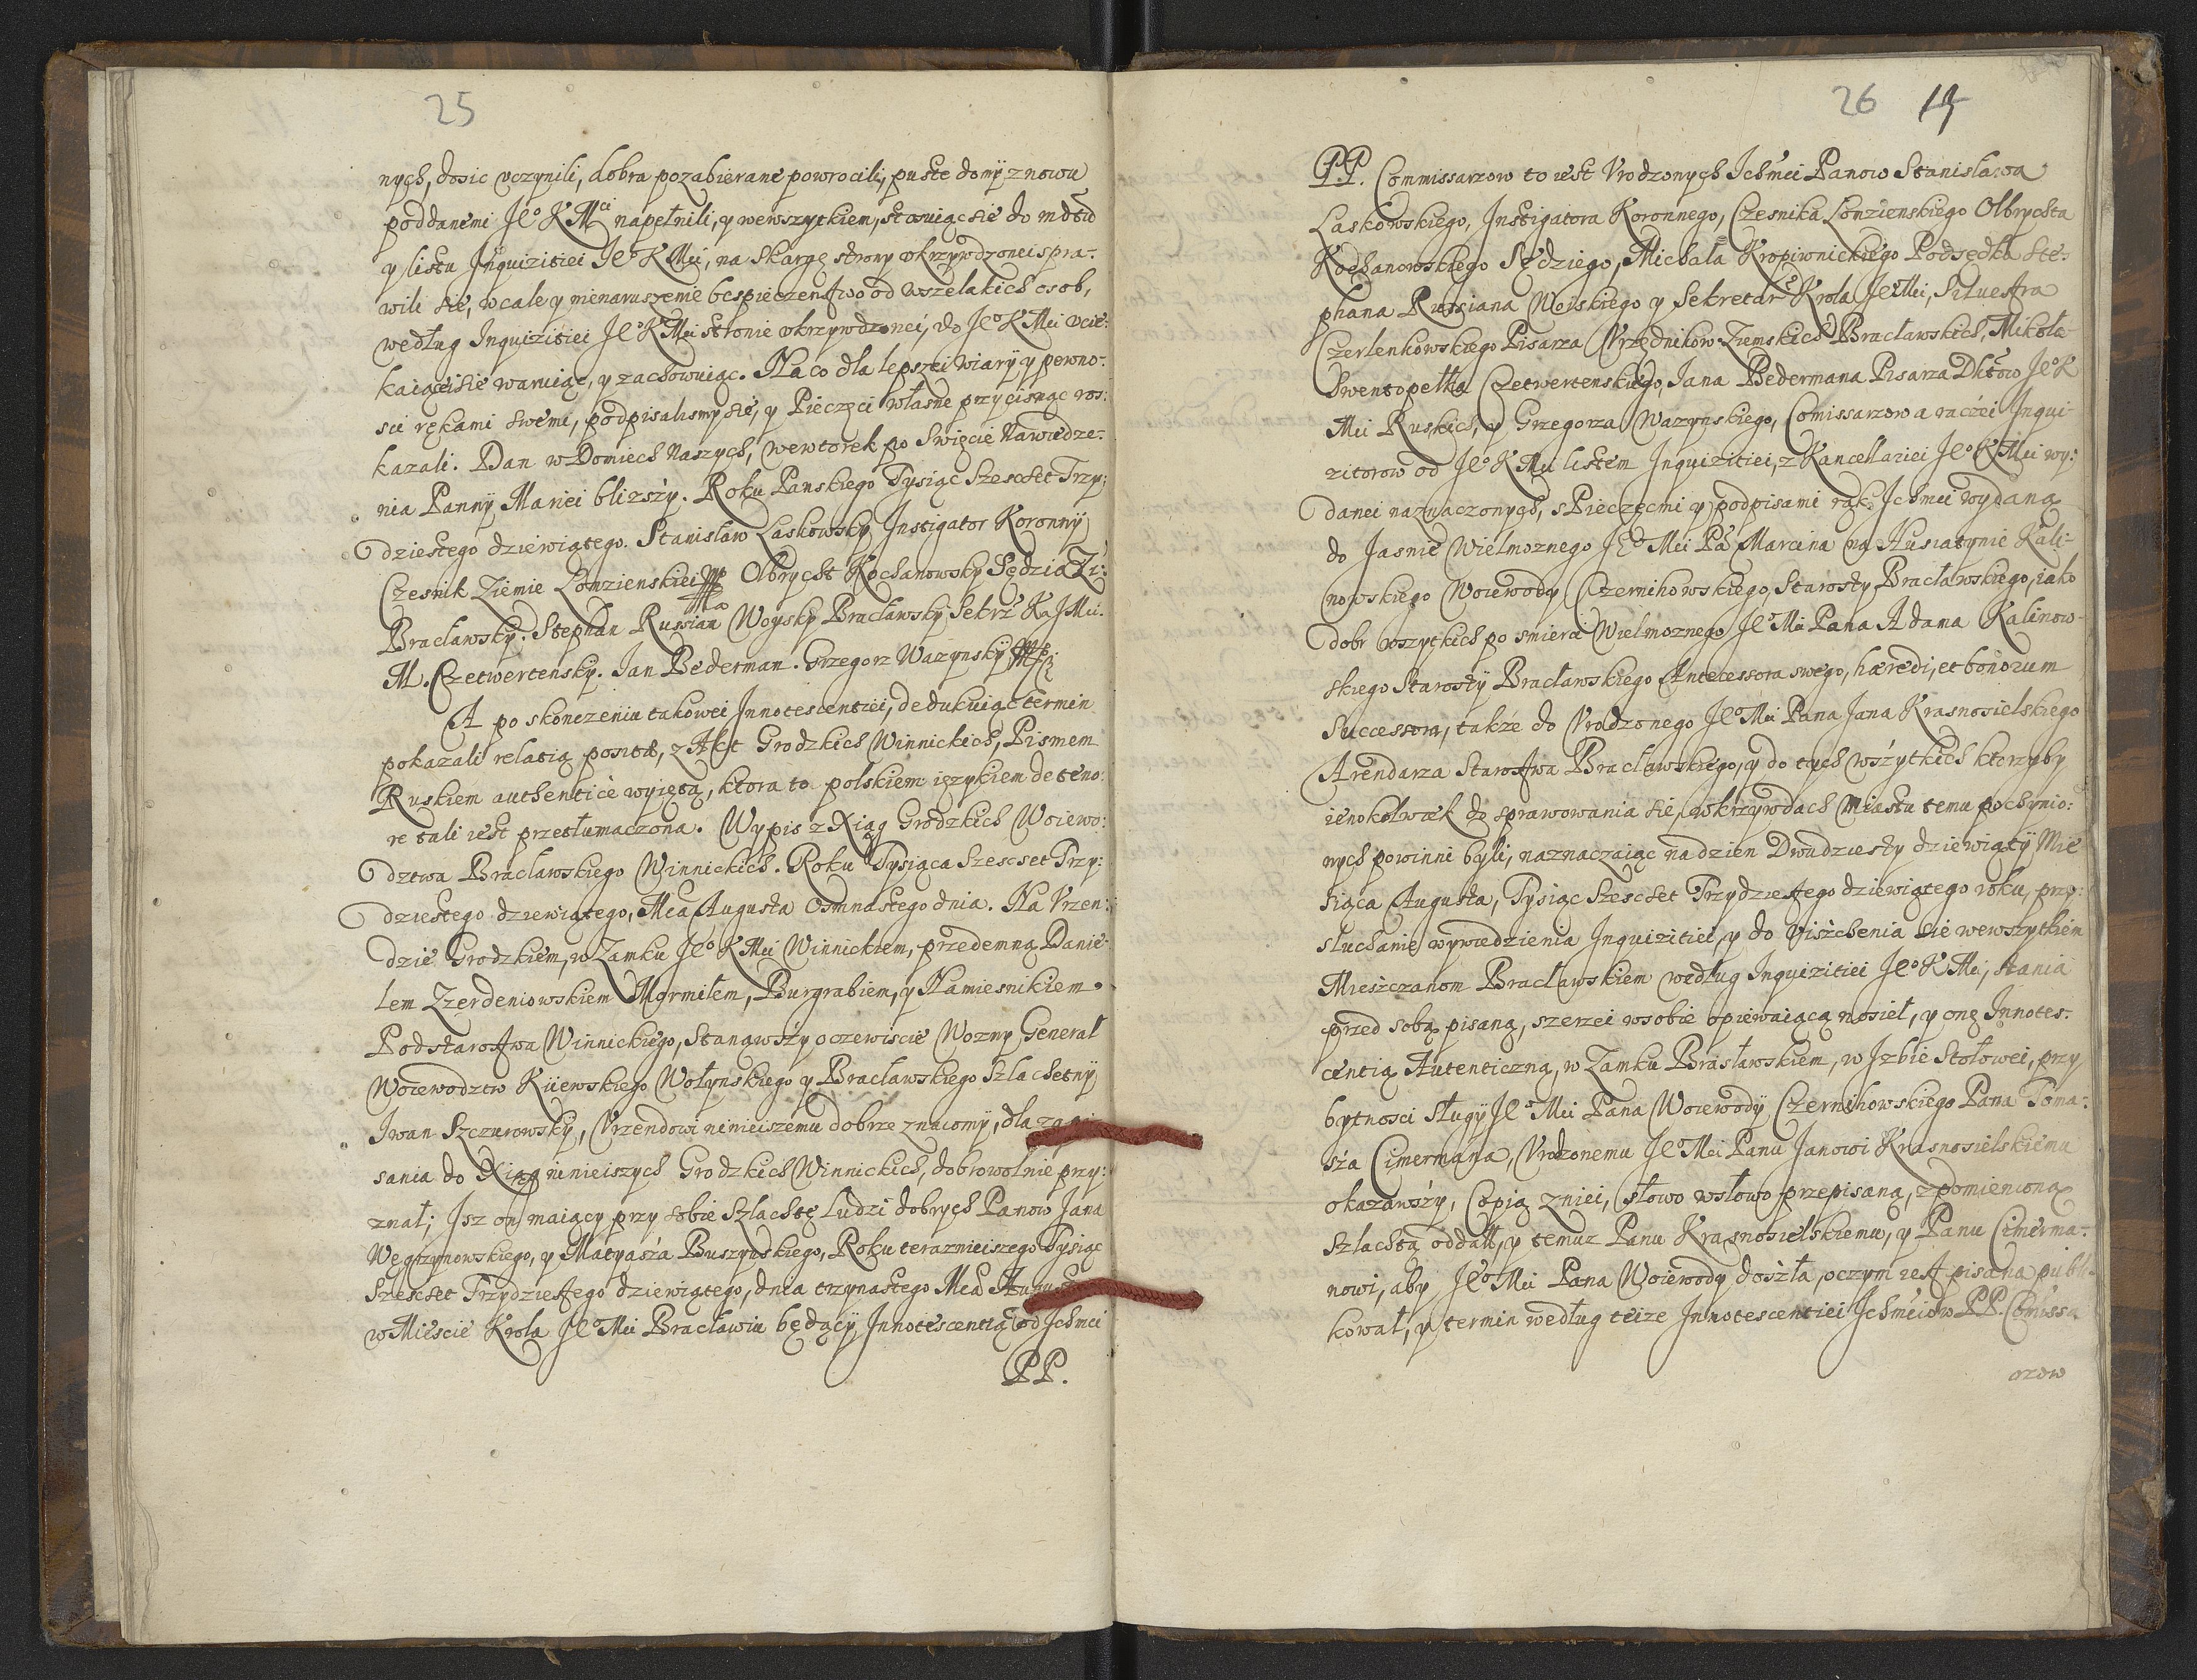 25
nych, dosic vczynili, dobra pozabierane powrocili, puste domÿ znowu
poddanemi Je° K Mci napełnili, y wewszytkiem, stowuiąc sie do mdtow
y listu Inquizitiei Je° K Mci, na skargę strony vkrzywdzonei spra:
wili sie, wcale y nienaruszenie bespieczenstwo od wszelakich osob,
według Inquizitiei Je° K Mci stronie vkrzywdzonei, do Je° K Mci vcie:
kaiącei sie waruiąc, y zachowuiąc. Na co dla lepszei wiarÿ y pewno:
sci rękami swemi, podpisalismy sie, y Pieczęci własne przycisnąc ros:
kazali. Dan w Domiech Naszych, wewtorek po Swięcie Nawiedze:
nia Pannÿ Mariei blizszÿ. Roku Panskiego Tysiąc Szescset Trzy:
dziestego dziewiątego. Stanislaw Laskowsky Instigator Koronnÿ
Czesnik Ziemie Lomzienskiei Olbrycht Kochanowsky Sędzia Zi:
Braclawsky. Stephan Russian Woysky Braclawsky Sekrz Ka J Mci.
M. Czetwertensky. Jan Bederman. Grzegorz Wazynsky
A po skonczeniu takowei Innotescentiei, dedukuiąc termin
pokazali relatią positą, z Akt Grodzkich Winnickich, Pismem
Ruskiem authenticè wyiętą, ktora to polskiem ięzykiem de teno:
re tali iest przetłumaczona. Wypis z Xiąg Grodzkich Woiewo:
dztwa Braclawskiego Winnickich. Roku Tysiąca Szescset Trzy:
dziestego dziewiątego, Mca Augusta Osmnastego dnia. Na Vrzen:
dzie Grodzkiem, w Zamku Je° K Mci Winnickiem, przedemną Danie:
lem Zerdeniowskiem Mormiłem, Burgrabiem, y Namiesnikiem
Podstarostwa Winnickiego, Stanąwszy oczewiscie Wozny Generał
Woiewodztw Kiiewskiego Wołynskiego y Braclawskiego Szlachetnÿ
Iwan Szczurowsky, Vrzendowi ninieiszemu dobrze znaiomy, dla
sania do Xiąg ninieiszych Grodzkich Winnickich, dobrowolnie przy:
znał; Isz on maiący przy sobie Szlachtę Ludzi dobrych Panow Jana
Węgrzynowskiego, y Matyasza Buszynskiego, Roku teraznieiszego Tysiąc
Szescset Trzydziestego dziewiątego, dnia trzynastego Mca
w Miescie Krola Je° Mci Braclawiu będący Innotescentią od Ichmci
PP.
26 19
P.P. Commissarzow to iest Vrodzonych Ichmci Panow Stanisława
Laskowskiego, Instigatora Koronnego, Czesnika Lomzienskiego Olbrychta
Kochanowskiego Sędziego, Michala Kropiwnickiego Podsędka Ste:
phana Russiana Woiskiego y Sekretar Krola Je° Mci, Siluestra
Czerlenkowskiego Pisarza Vrzędnikow Ziemskich Braclawskich, Mikoła
Swentopełka Czetwertenskiego, Jana Bedermana Pisarza Dktow Je° K
Mci Ruskich, y Grzegorza Wazynskiego, Comissarzow a raczei Inqui:
zitorow od Je° K Mci listem Inquizitiei, z Kancellariei Je° K Mci wy:
danei naznaczonych, s Pieczęcmi y podpisami rąk Ichmci wydaną
do Jasnie Wielmoznego Je° Mci Pa Marcina na Husiatynie Kali:
nowskiego Woiewody Czernihowskiego, Starosty Bracławskiego, iako
dobr wszytkich po smierci Wielmoznego Je° Mci Pana Adama Kalinow:
skiego Starostÿ Bracławskiego Antecessora swego, hæredi, et bonorum
Successora, także do Vrodzonego Je° Mci Pana Jana Krasnosielskiego
Arendarza Starostwa Bracławskiego, y do tych wszytkich ktorzyby
ienokolwiek do sprawowania sie, wkrzywdach Miastu temu poczynio:
nych powinni byli, naznaczaiąc na dzien Dwudziesty dziewiątÿ Mie
siąca Augusta, Tysiąc Szescset Trzydziestego dziewiątego roku, przy:
słuchanie wywiedzienia Inquizitiei, y do Viszczenia sie wewszytkiem
Mieszczanom Bracławskiem według Inquizitiei Je° K Mci, stania
przed sobą pisaną, szerzei wsobie opiewaiącą nosieł, y onę Innotes:
centią Autenticzną, w Zamku Brasławskiem, w Izbie Stołowei, przy
bytnosci sługÿ Je° Mci Pana Woiewodÿ Czernihowskiego Pana Toma:
sza Cimermana, Vrodzonemu Je° Mci Panu Janowi Krasnosielskiemu
okazawszy, Copią zniei, słowo wsłowo przepisaną, zpomienioną
Szlachtą oddałł, y temuz Panu Krasnosielskiemu, y Panu Cimerma:
nowi, aby Je° Mci Pana Woiewody doszła, oczym iest pisana publi
kował, y termin według teize Innotescentiei Ichmciow PP. Comissa
rzow